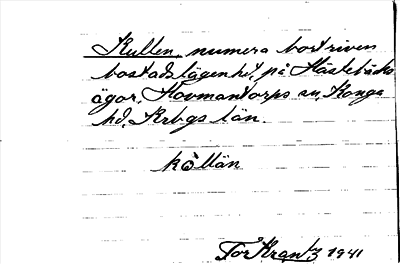 Kullen, numera bortriven
bostadslägenhet, på Hästebäcks
ägor, Hovmantorps sn, Konga
hd, Krbgs län.
kö̀llän
Tor Krantz 1941